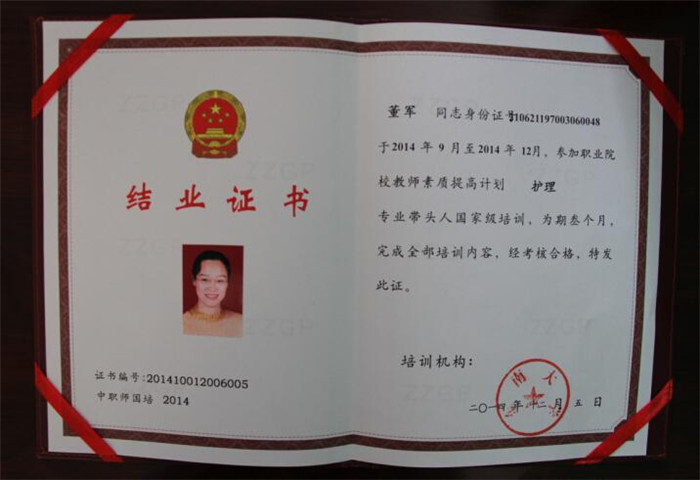 结业证书
证书编号:201410012006005
中职师国培 2014
董军 同志身份证号110621197003060048
于2014 年 9 月至2014 年 12月，参加职业院
校教师素质提高计划 护理
专业带头人国家级培训，为期叁个月，
完成全部培训内容，经考核合格，特发
此证。
培训机构：
二〇一四 年 十二 月 五 日